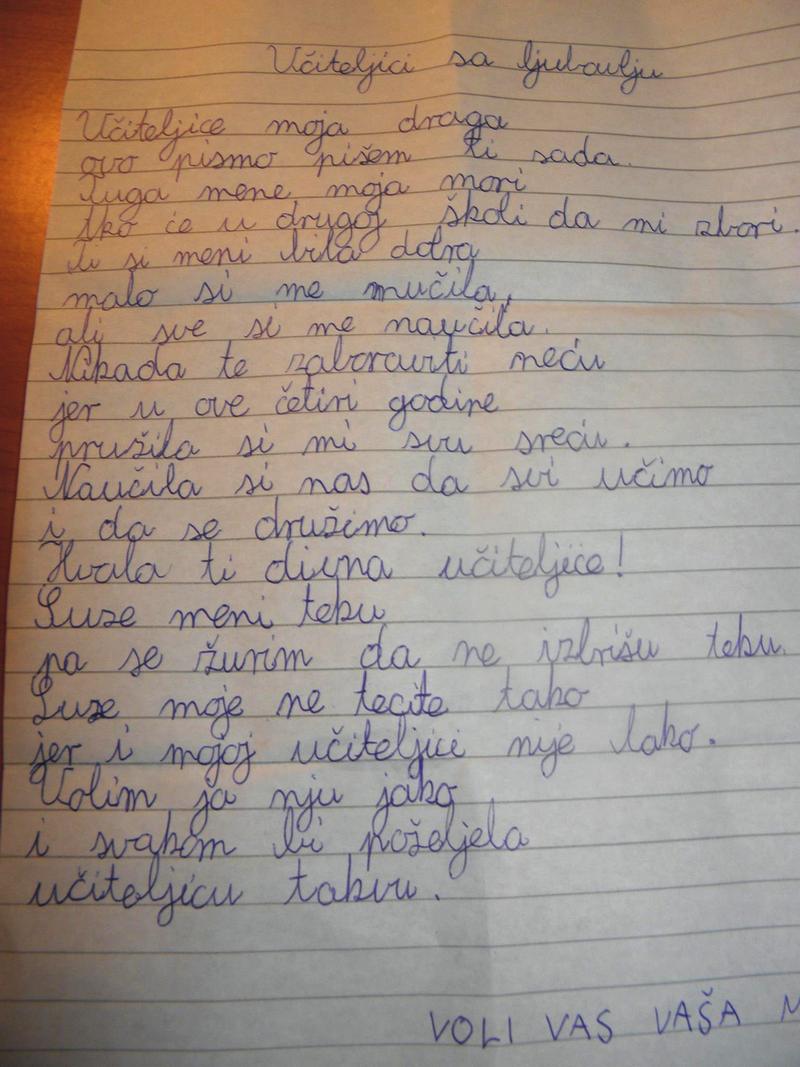 Učiteljici sa ljubavlju
Učiteljice moja draga
ovo pismo pišem ti sada.
Tuga mene moja mori
tko će u drugoj školi da mi zbori.
Ti si meni bila dobra
malo si me mučila,
ali sve si me naučila.
Nikada te zaboraviti neću
jer u ove četiri godine
pružila si mi svu sreću.
Naučila si nas da svi učimo
i da se družimo.
Hvala ti divna učiteljice!
Suze meni teku
pa se žurim da ne izbrišu teku.
Suze moje ne tecite tako
jer i mojoj učiteljici nije lako.
Volim ja nju jako
i svakom bi poželjela
učiteljicu takvu.
VOLI VAS VAŠA